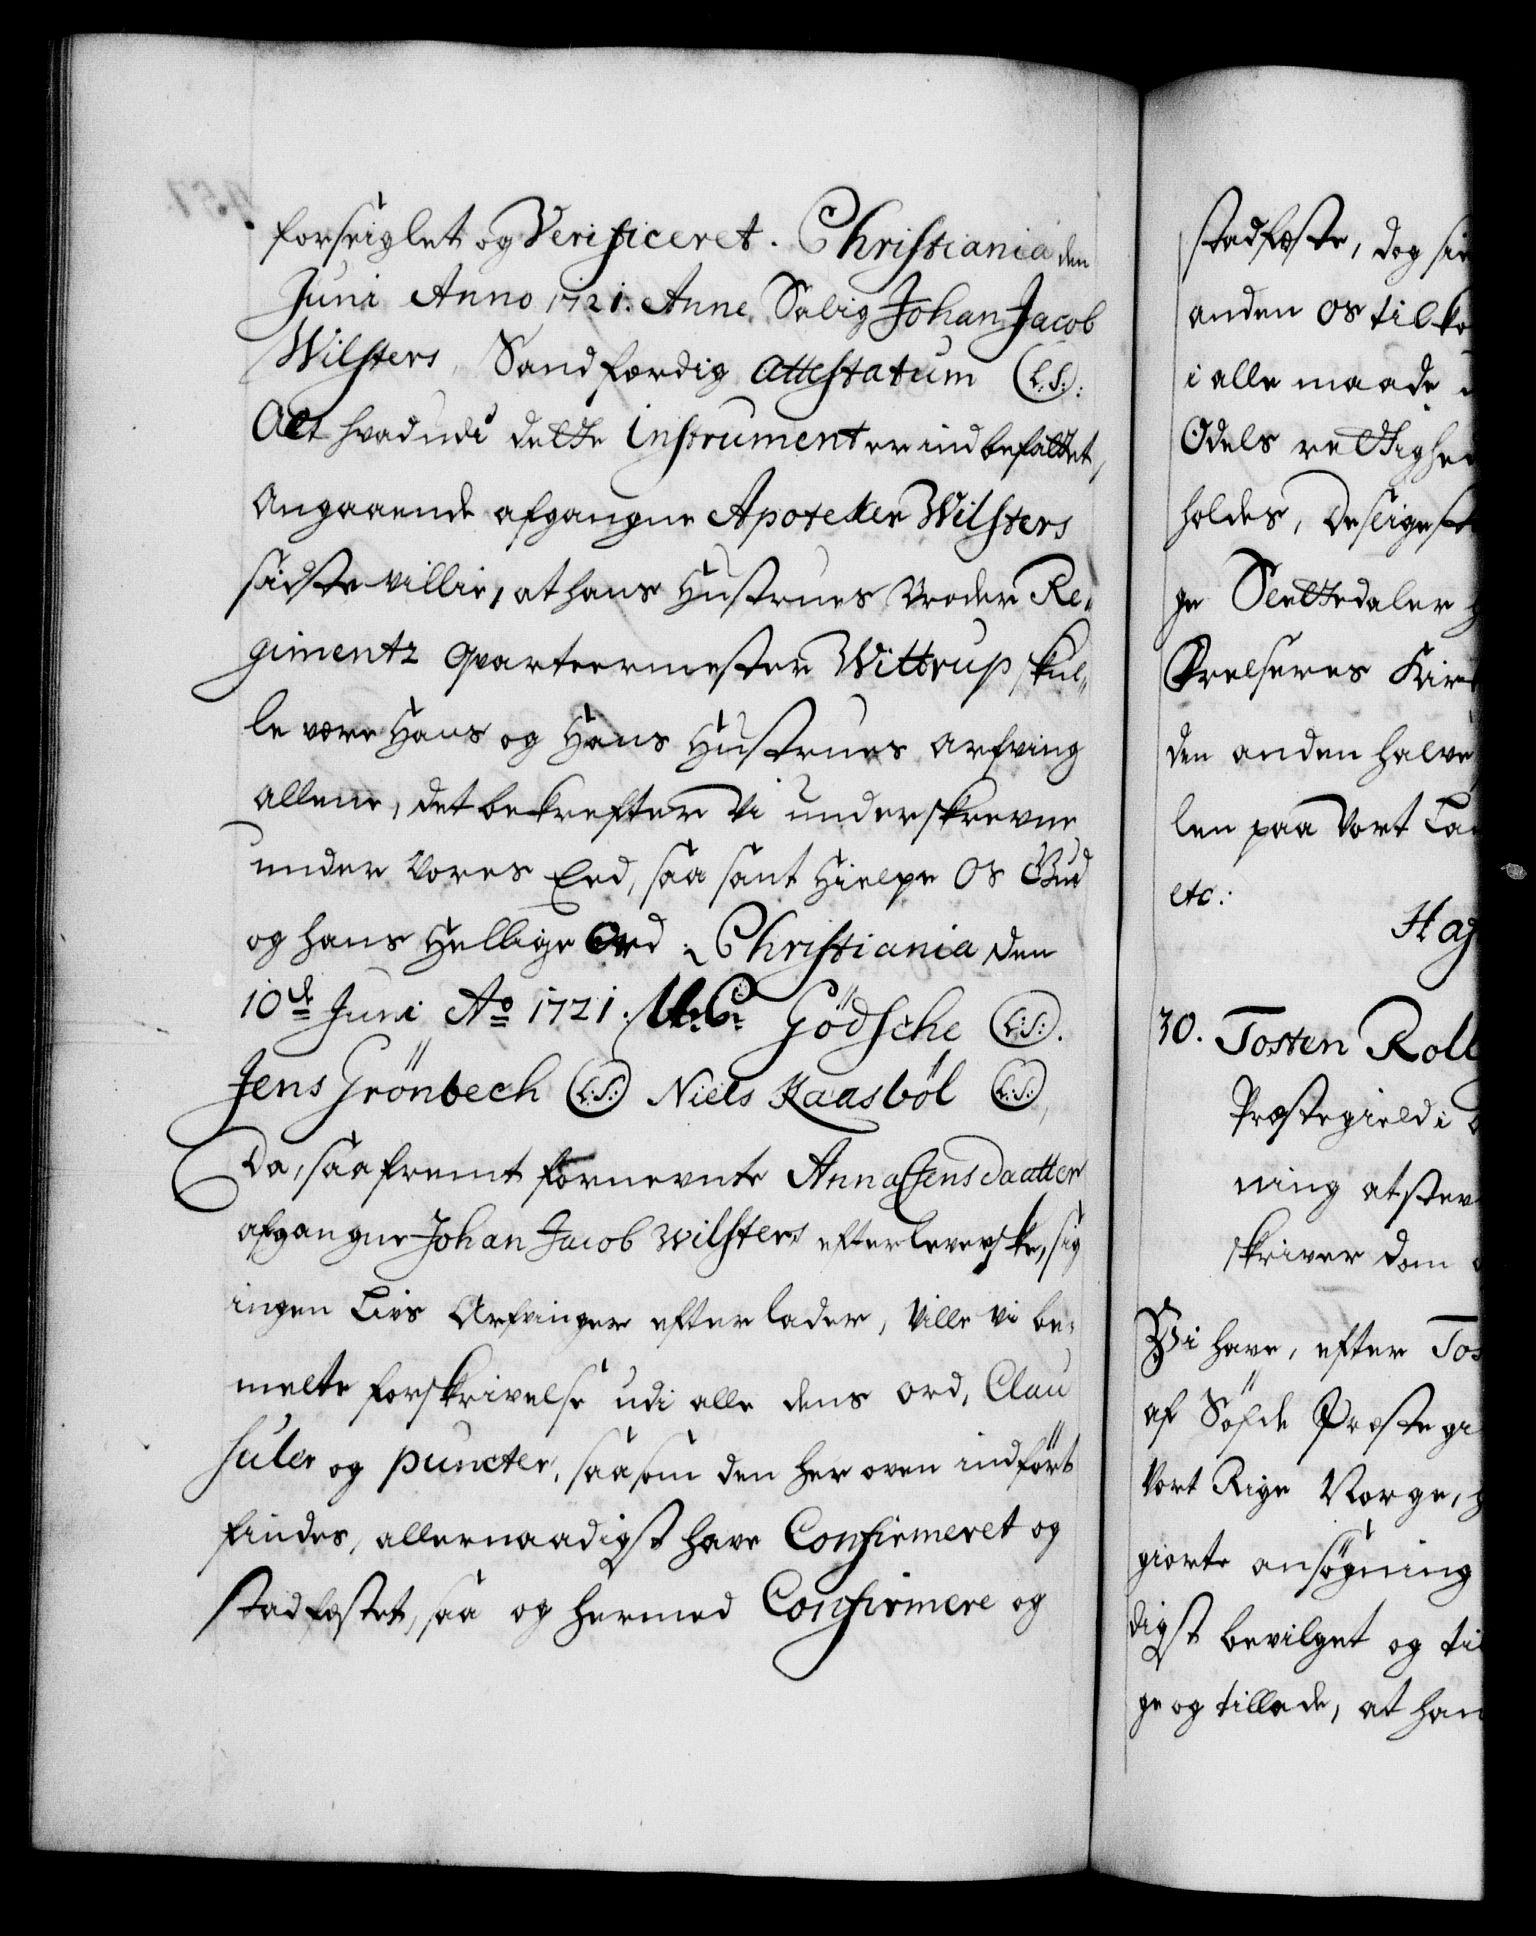 forseiglet og Verificeret. Christiania den
Juni Anno 1721. Anne Salig Johan Jacob
Wilsters, Sandfærdig attestatum (L.S.):
Alt hvad udi dette Instrument er indbefattet,
Angaaende afgangne Apoteker Wilsters
sidste villie, at hans Hustrues Broder Re¬
gimentz Qvarteermester Wittrup skul¬
le være Hans og Hans Hustrues Arfving
allene, det bekrefter Vi underskrevne
under Vores Eed, saa sant Hielpe Os Gud
og hans Hellige Ord. Christiania den
10de Juni Ao 1721. Gödsche (L:S:).
Jens Grönbech (L:S:) Niels Kaasböl (L:S:),
Da, saafremt fornevnte Anna Jensdaatter
afgangne Johan Jacob Wilsters efterleverske, sig
ingen Livs Arfvinger efterlader, Ville Vi be¬
melte forskrivelse udi alle dens ord, Clau
suler og puncter, saasom den her oven indfört
findes, allernaadigst have Confirmeret og
stadfæstet, saa og hermed Confirmere og
stadfæste, dog si
anden Os tilko
i alle maade
Odels rettighe
holdes, Desligest
ge Slettedaler
Frelseres Kir
den anden halve
len paa Vort La
etc:
Haf
30. Tosten Roll
Præstegield i
ning at stev
skriver dom
Vi have, efter Tos
af Söfde Præstegi
Vort Rige Norge,
giorte ansögning
digst bevilget og til
ge og tillade, at han